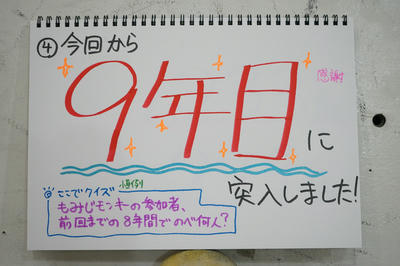 ④今回から
9年目に
感謝
突入しました!
ここでクイズ 恒例
もみじモンキーの参加者、
前回までの8年間でのべ何人?